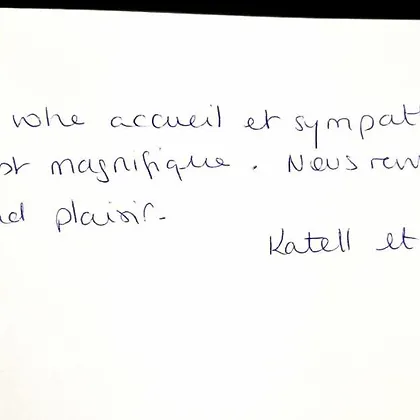 votre accueil et sympat
st magnifique. Nous rev
nd plaisir.
Katell et